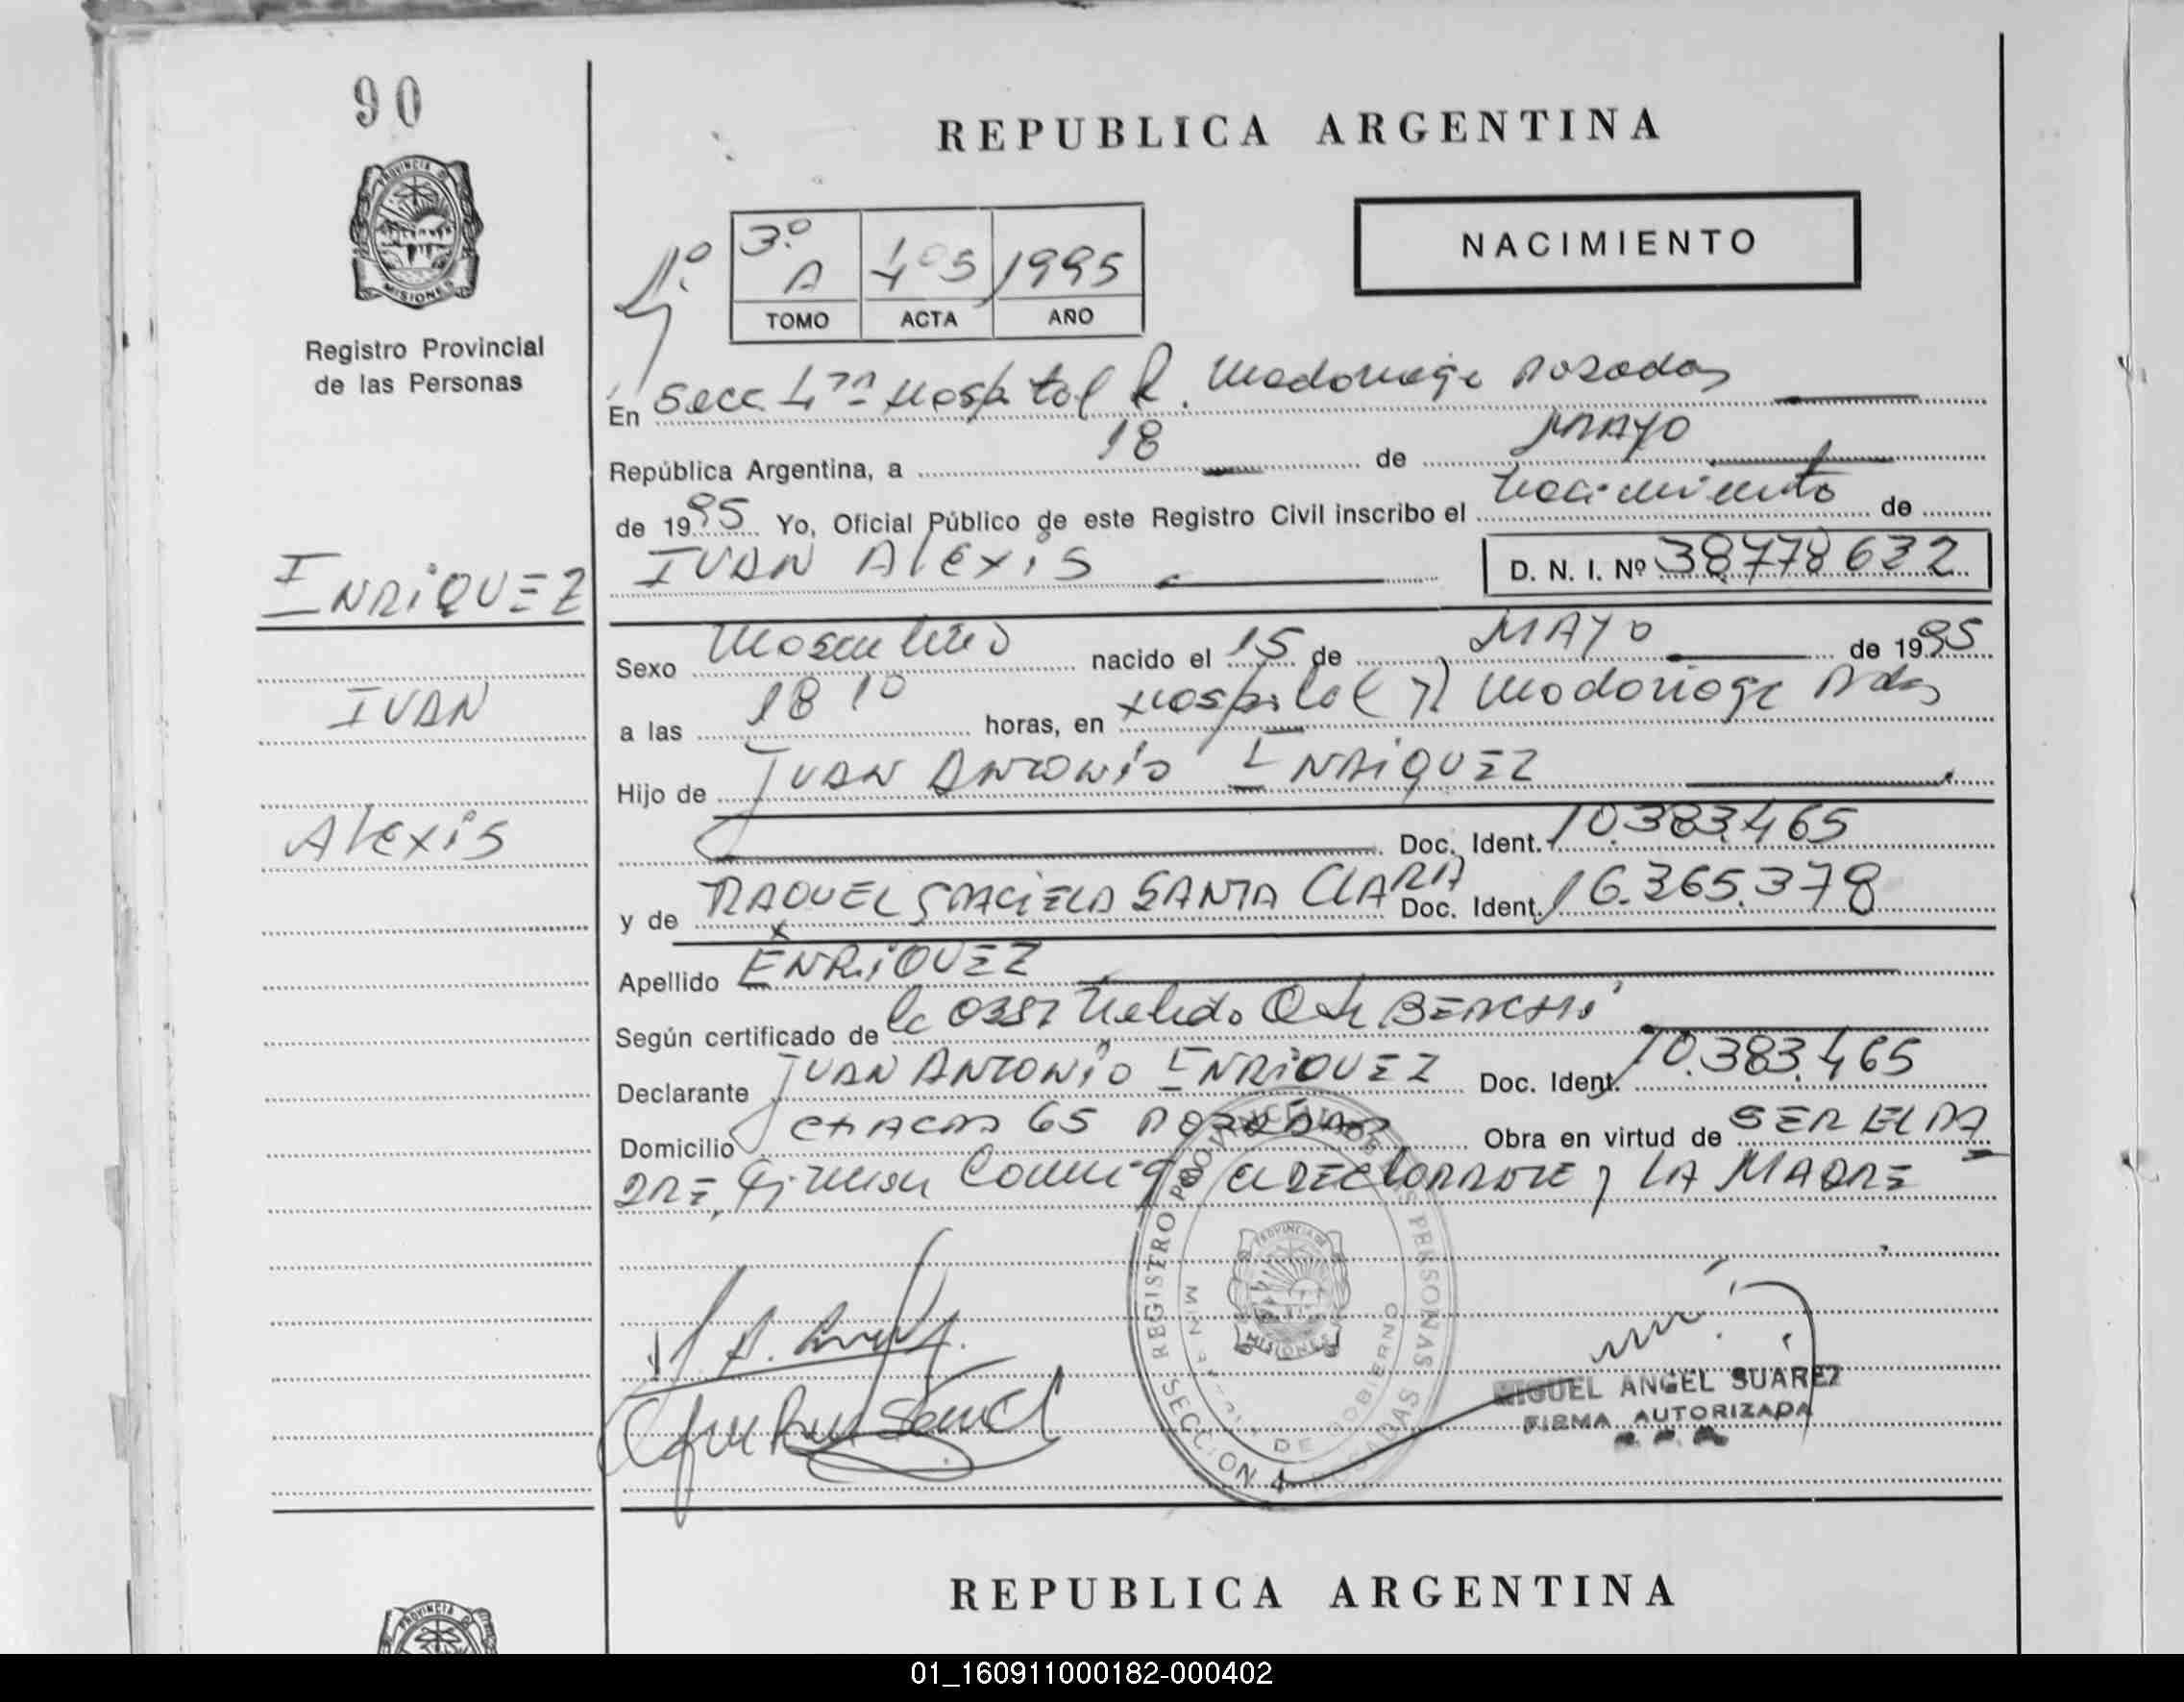 90
REPUBLICA ARGENTINA
PROVINCIA DE
MISIONES
Registro Provincial
de las Personas
3º A 405 1995
TOMO ACTA AÑO
NACIMIENTO
En Secc 4ta Hospital R. Madariaga Posadas
República Argentina, a 18 de MAYO
de 1995 Yo, Oficial Público de este Registro Civil inscribo el Nacimiento de
IVAN Alexis D. N. I. Nº 38778632
ENRIQUEZ
IVAN
Alexis
Sexo Masculino nacido el 15 de MAYO de 1995
a las 18 10 horas, en Hospital R Madariaga Pdas
Hijo de JUAN ANTONIO ENRIQUEZ
Doc. Ident. 10.383.465
y de RAQUEL GRACIELA SANTA CLARA Doc. Ident. 16.365.378
Apellido ENRIQUEZ
Según certificado de la Obst Nelida
Declarante JUAN ANTONIO ENRIQUEZ Doc. Ident. 10.383.465
Domicilio CHACAS 65 POSADAS Obra en virtud de SER EL PA
DRE, Firman Conmigo el DEClARANTE y LA MADRE
REGISTRO PROVINCIAL DE LAS PERSONAS
MISIONES
DE GOBIERNO
SECCION 4 POSADAS
MIGUEL ANGEL SUAREZ
FIRMA AUTORIZADA
REPUBLICA ARGENTINA
PROVINCIA D
01_160911000182-000402